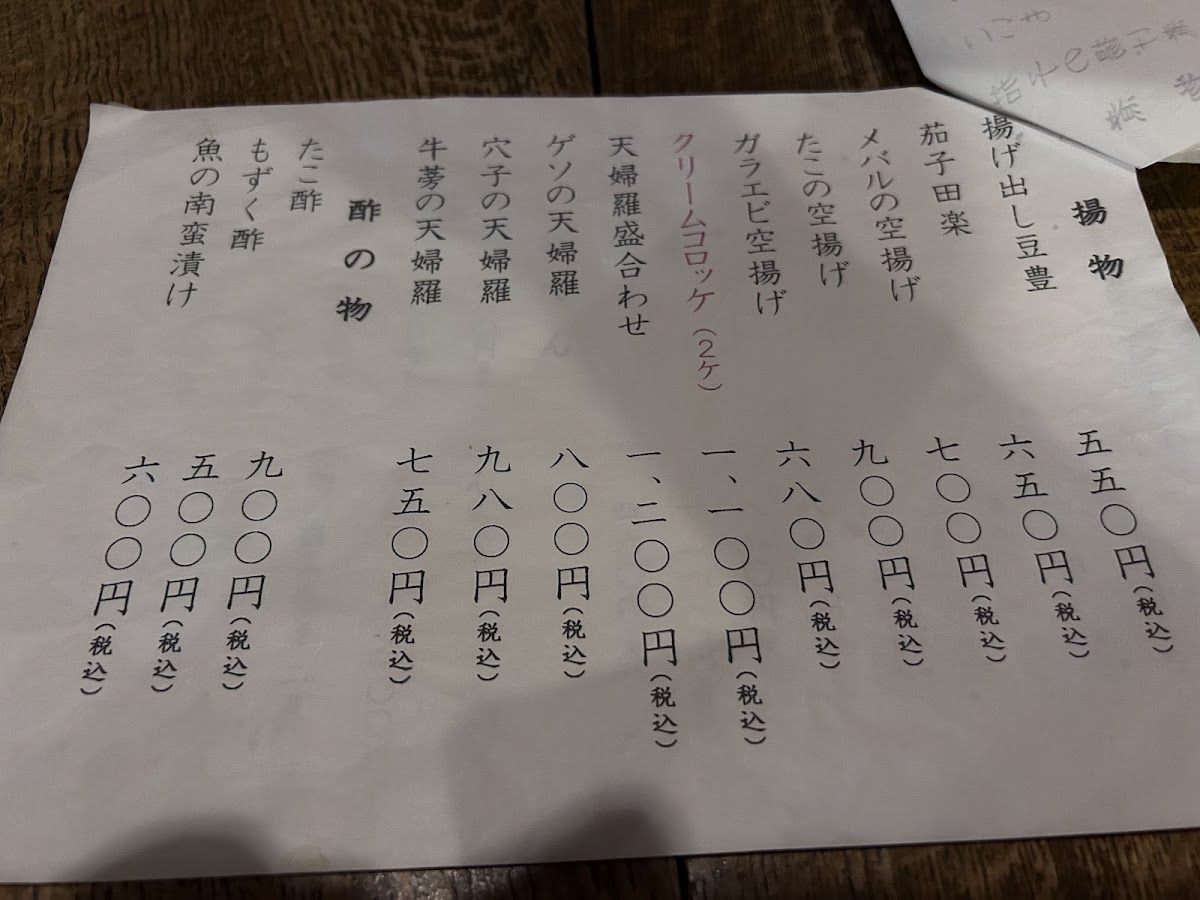 揚物
揚げ出し豆豊 五五〇円(税込)
茄子田楽 六五〇円(税込)
メバルの空揚げ 七〇〇円(税込)
たこの空揚げ 九〇〇円(税込)
ガラエビ空揚げ 六八〇円(税込)
クリームコロッケ(2ケ) 一、一〇〇円(税込)
天婦羅盛合わせ 一、二〇〇円(税込)
ゲソの天婦羅 八〇〇円(税込)
穴子の天婦羅 九八〇円(税込)
牛蒡の天婦羅 七五〇円(税込)
酢の物
たこ酢 九〇〇円(税込)
もずく酢 五〇〇円(税込)
魚の南蛮漬け 六〇〇円(税込)